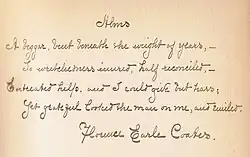 Alms
A beggar, bent beneath the weight of years,—
To wretchedness inured, half reconciled,—
Entreated help, and I could give but tears;
Yet grateful looked the man on me, and smiled.
Florence Earle Coates.